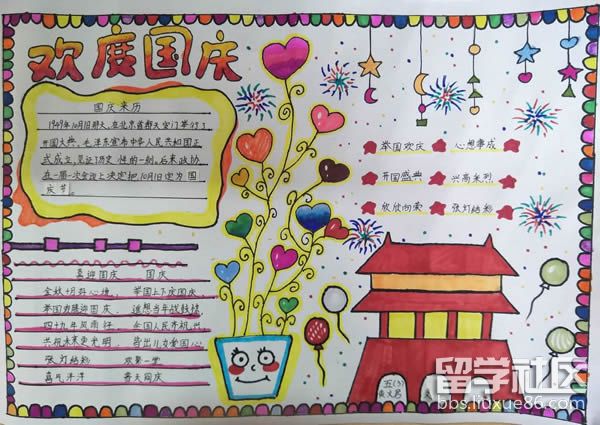 欢度国庆
国庆来历
1949年10月1日那天,在北京首都天安门举行了
开国大典,毛泽东宣布中华人民共和国正
式成立,见证历史性的一刻,后来政协
在一届一次会议上决定把10月1日定为国
庆节。
举国欢庆 心想事成
开国盛典 兴高采烈
欣欣向荣 张灯结彩
喜迎国庆 国庆
金秋十月好心境, 举国上下庆国庆
举国欢腾迎国庆, 追想当年战鼓擂
四十九年风雨征 全国人民齐振兴
共祝未来更光明, 唇出儿女爱国心
张灯结彩 欢聚一堂
喜气洋洋 普天同庆
五(3)
留学社区
bbs.liuxue86.com